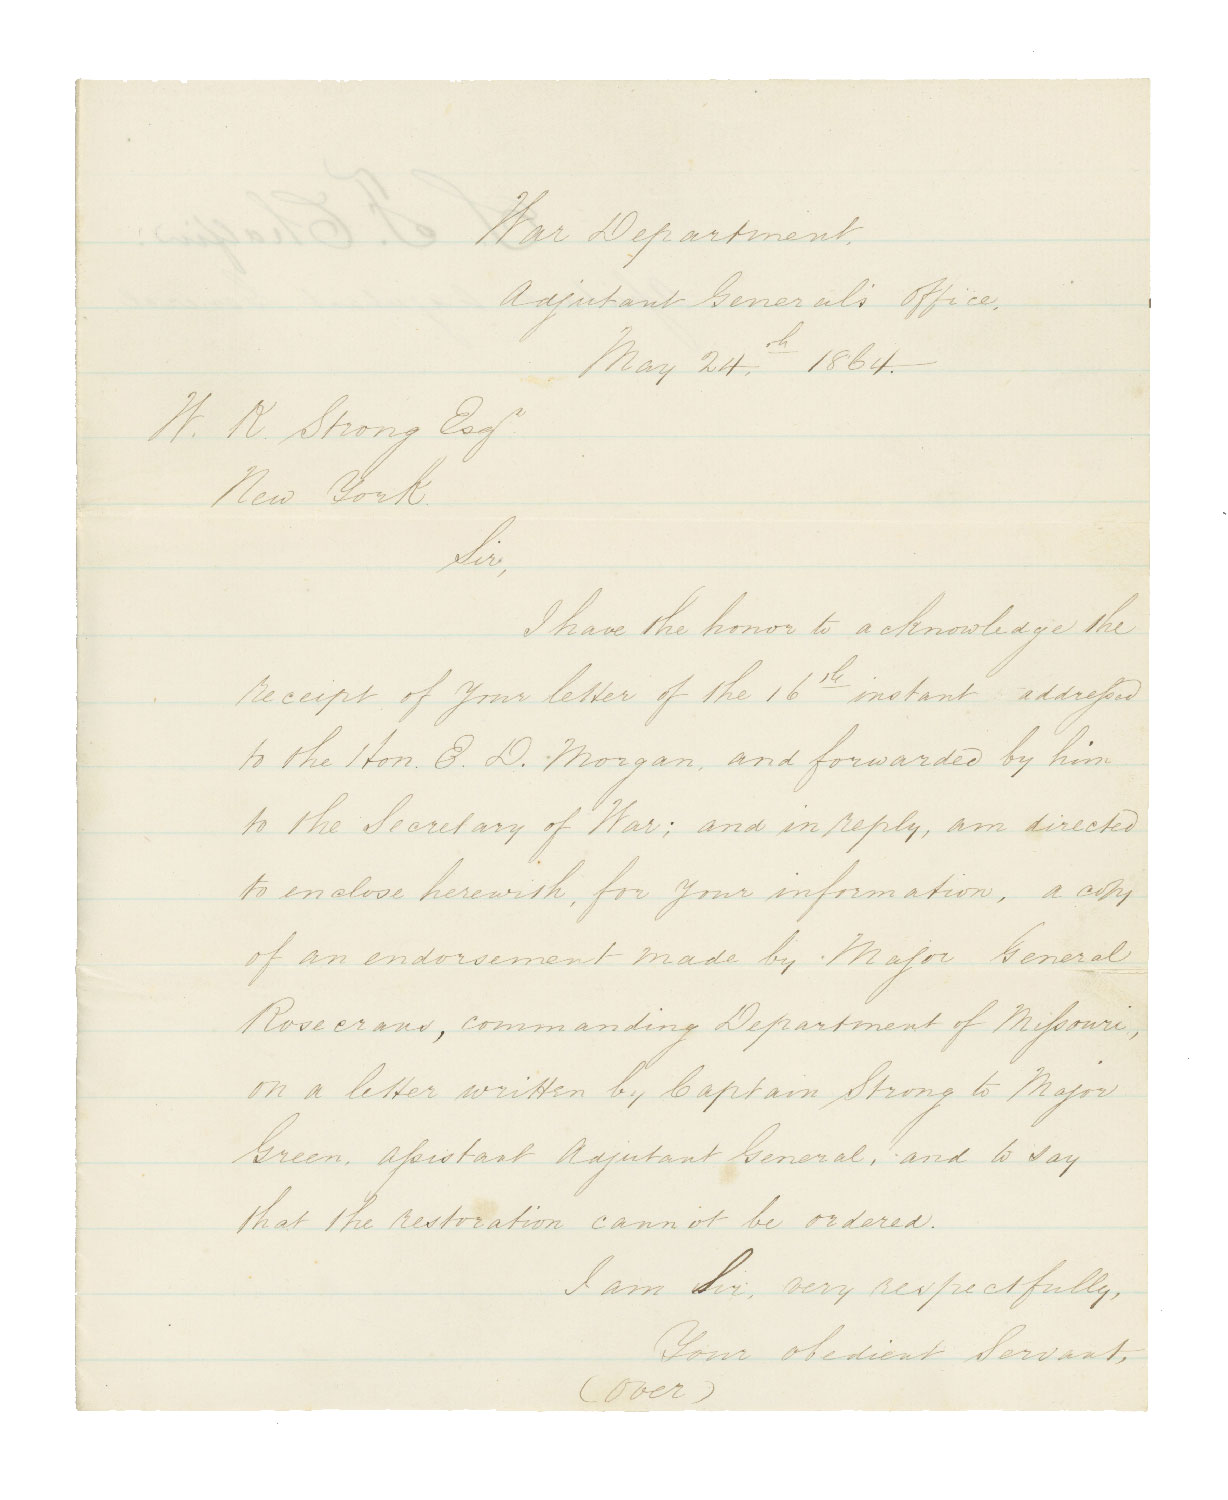 War Department,
Adjutant General's Office,
May 24th. 1864.
W. K. Strong Esqr.
New York.
Sir,
I have the honor to acknowledge the
receipt of your letter of the 16th instant addressed
to the Hon. E. D. Morgan, and forwarded by him
to the Secretary of War; and in reply, am directed
to enclose herewith, for your information, a copy
of an endorsement made by Major General
Rosecrans, commanding Department of Missouri,
on a letter written by Captain Strong to Major
Green, Assistant Adjutant General, and to say
that the restoration cannot be ordered.
I am Sir, very respectfully,
Your obedient Servant,
(over)